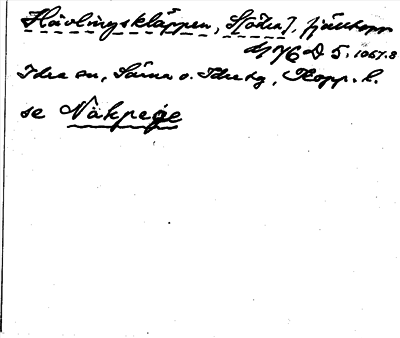 Hävlingskläppen, St̶o̶ [Södra], fjälltopp
dy76 D 5. 1067.8
Idre sn, Särna o. Idre tg, Kopp. l.
se Näkpege